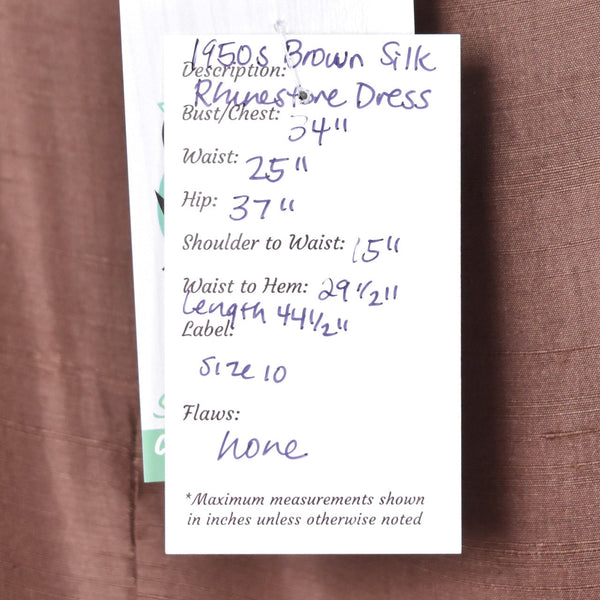 1950s Brown Silk
Description:
Rhinestone Dress
Bust/Chest: 34"
Waist: 25"
Hip: 37"
Shoulder to Waist: 15"
Waist to Hem: 29 1/2"
length 44 1/2"
Label:
size 10
Flaws:
none
*Maximum measurements shown
in inches unless otherwise noted